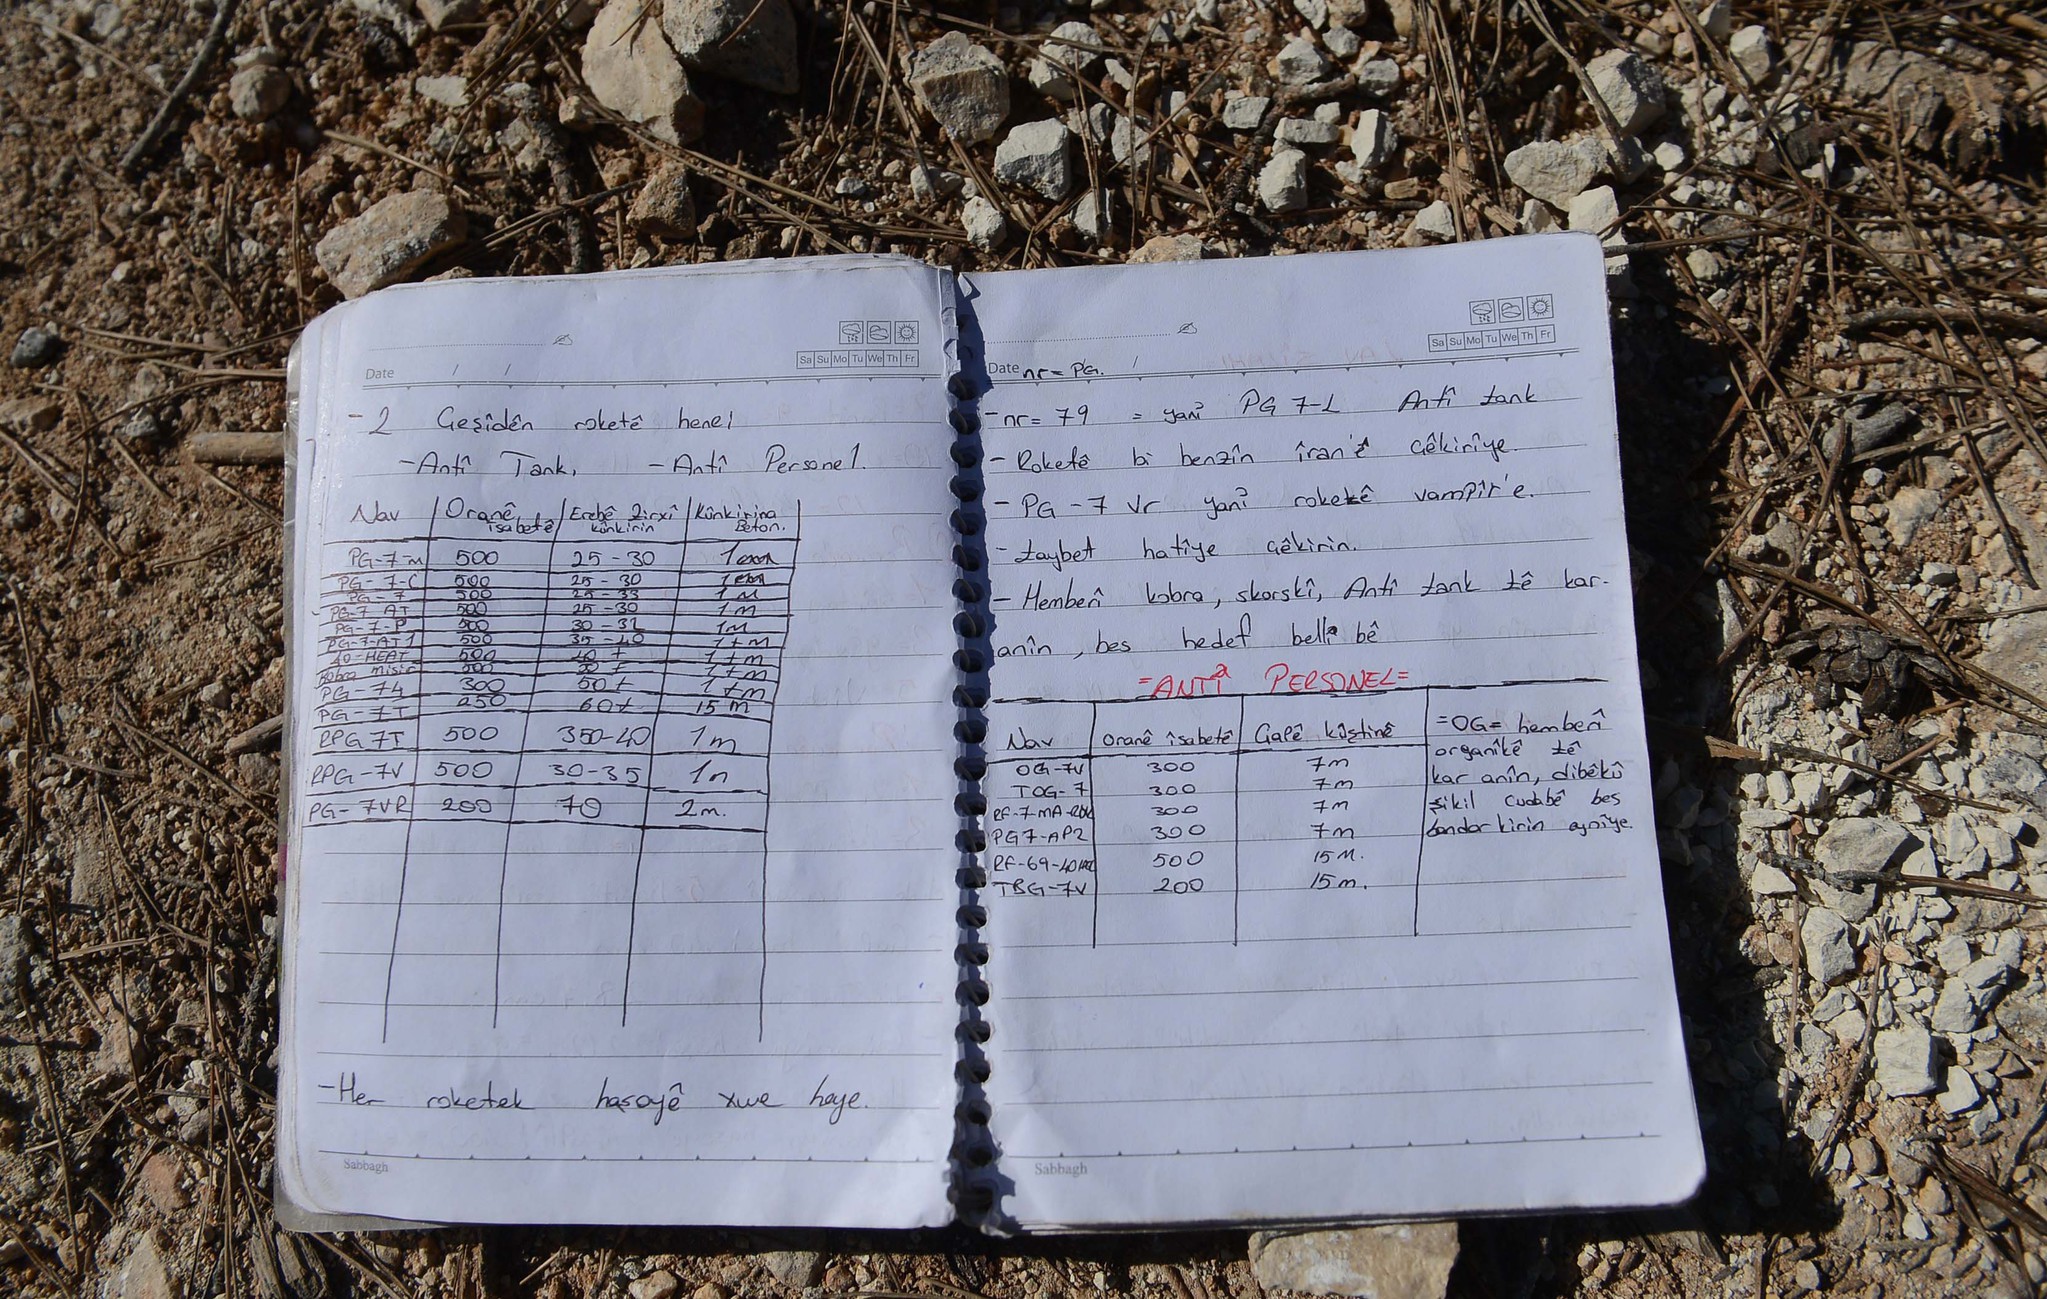 Sa Su Mo Tu We Th Fr
Date / /
- 2 Geşîdên roketê henei
- Antî Tank, - Antî Personel.
Nav Oranê isabetê Erebê Zirxî kûnkirin Kûnkirina Beton.
PG-7-m 500 25 - 30 1
PG-7-C 500 25 - 30 1
PG-7 500 25 - 33 1 M
PG-7 AT 500 25 - 30 1 m
PG-7-P 500 30 - 32 1M
PG-7-AT1 500 35 - 40 1 + m
40-HEAT 500 40 + 1 + m
Kobra misir 500 50 + 1 + m
PG-7L 300 50 + 1 + m
PG-7T 250 60+ 15 m
RPG 7T 500 350-40 1m
RPG-7V 500 30-35 1m
PG-7VR 200 70 2m.
- Her roketek hasayê xwe heye.
Sabbagh
Sa Su Mo Tu We Th Fr
Date nr = PG. /
- nr = 79 = yanî PG 7-L Antî tank
- Roketê bi benzîn îran'ê çêkirîye.
- PG - 7 Vr yanî roketê vampîr'e.
- taybet hatîye çêkirin.
- Hemberî kobra, skorskî, Antî tank tê kar-
anîn, bes hedef belli bê
= ANTÎ PERSONEL =
Nav Oranê îsabetê Galê kûştinê
OG-7V 300 7m
TOG-7 300 7m
RF-7-MA- 300 7m
PG7-AP2 300 7m
RF-69-40 500 15 M.
TBG-7V 200 15 m.
= OG = hemberî
organîkê tê
kar anîn, dibêkû
şikil cudabê bes
bandor kirin aynîye.
Sabbagh